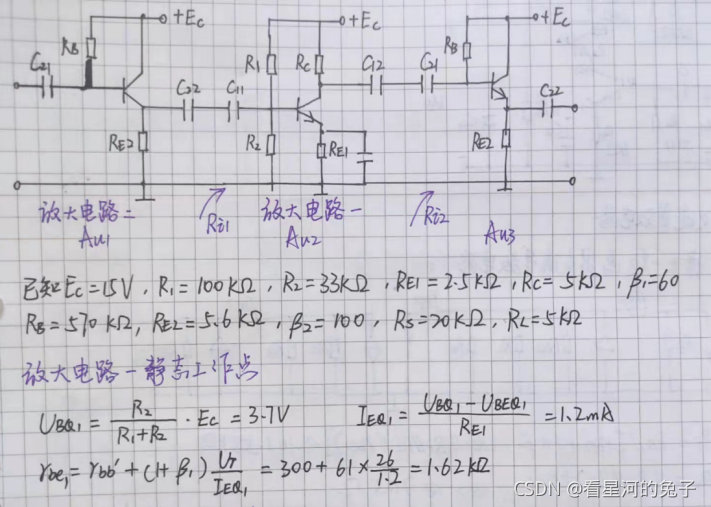 +Ec
+Ec
+Ec
RB
R1
Rc
RB
C21
C22
C11
C12
C21
C22
RE2
R2
RE1
RE2
放大电路二
Ri1
放大电路一
Ri2
Au1
Au2
Au3
已知Ec=15V,R1=100kΩ,R2=33kΩ,RE1=2.5kΩ,Rc=5kΩ,β1=60
RB=570kΩ,RE2=5.6kΩ,β2=100,Rs=20kΩ,RL=5kΩ
放大电路一静态工作点
UBQ1=R2/(R1+R2)·Ec=3.7V IEQ1=(UBQ1-UBEQ1)/RE1=1.2mA
rbe1=rbb'+(1+β1)UT/IEQ1=300+61×26/1.2=1.62kΩ
CSDN @看星河的兔子